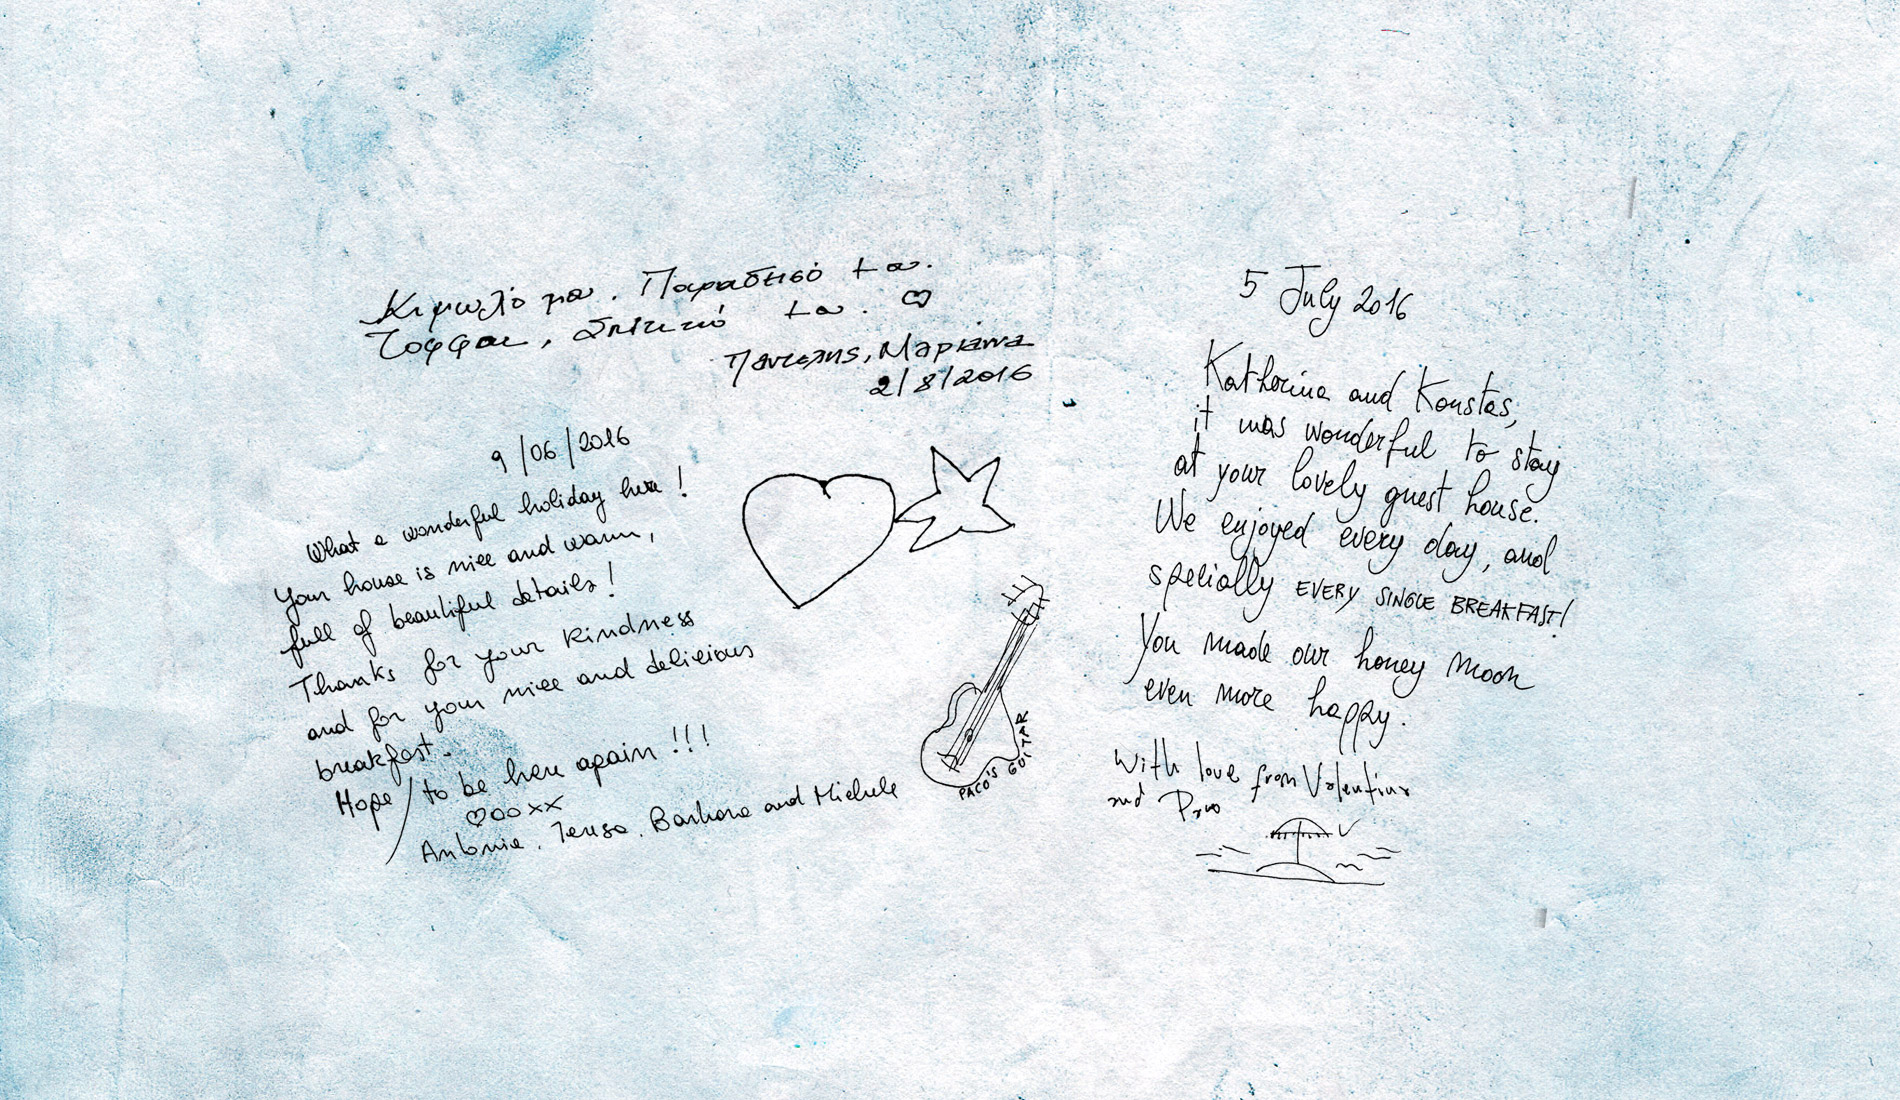 Κιμωλιό μου. Παραδεισό του.
Τοφφαι, σπιτικό του. ♡
Παντελής, Μαριάννα
2/8/2016
9/06/2016
What a wonderful holiday here!
Your house is nice and warm,
full of beautiful details!
Thanks for your kindness
and for your nice and delicious
breakfast.
Hope / to be here again!!!
♡oo xx
Antonia, Teresa, Barbara and Michele
PACO'S GUITAR
5 July 2016
Katherina and Konstas,
it was wonderful to stay
at your lovely guest house.
We enjoyed every day, and
specially EVERY SINGLE BREAKFAST!
You made our honey moon
even more happy.
With love from Valentina
and